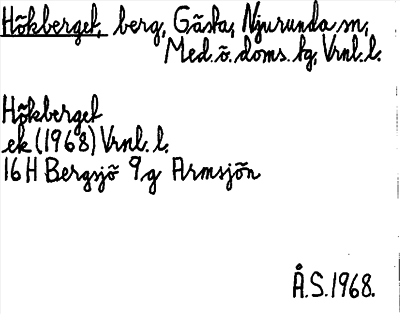 Hökberget, berg, Gästa, Njurunda sn,
Med. ö. doms. tg, Vrnl. l.
Hökberget
ek (1968) Vrnl. l.
16 H Bergsjö 9 g Armsjön
Å.S. 1968.